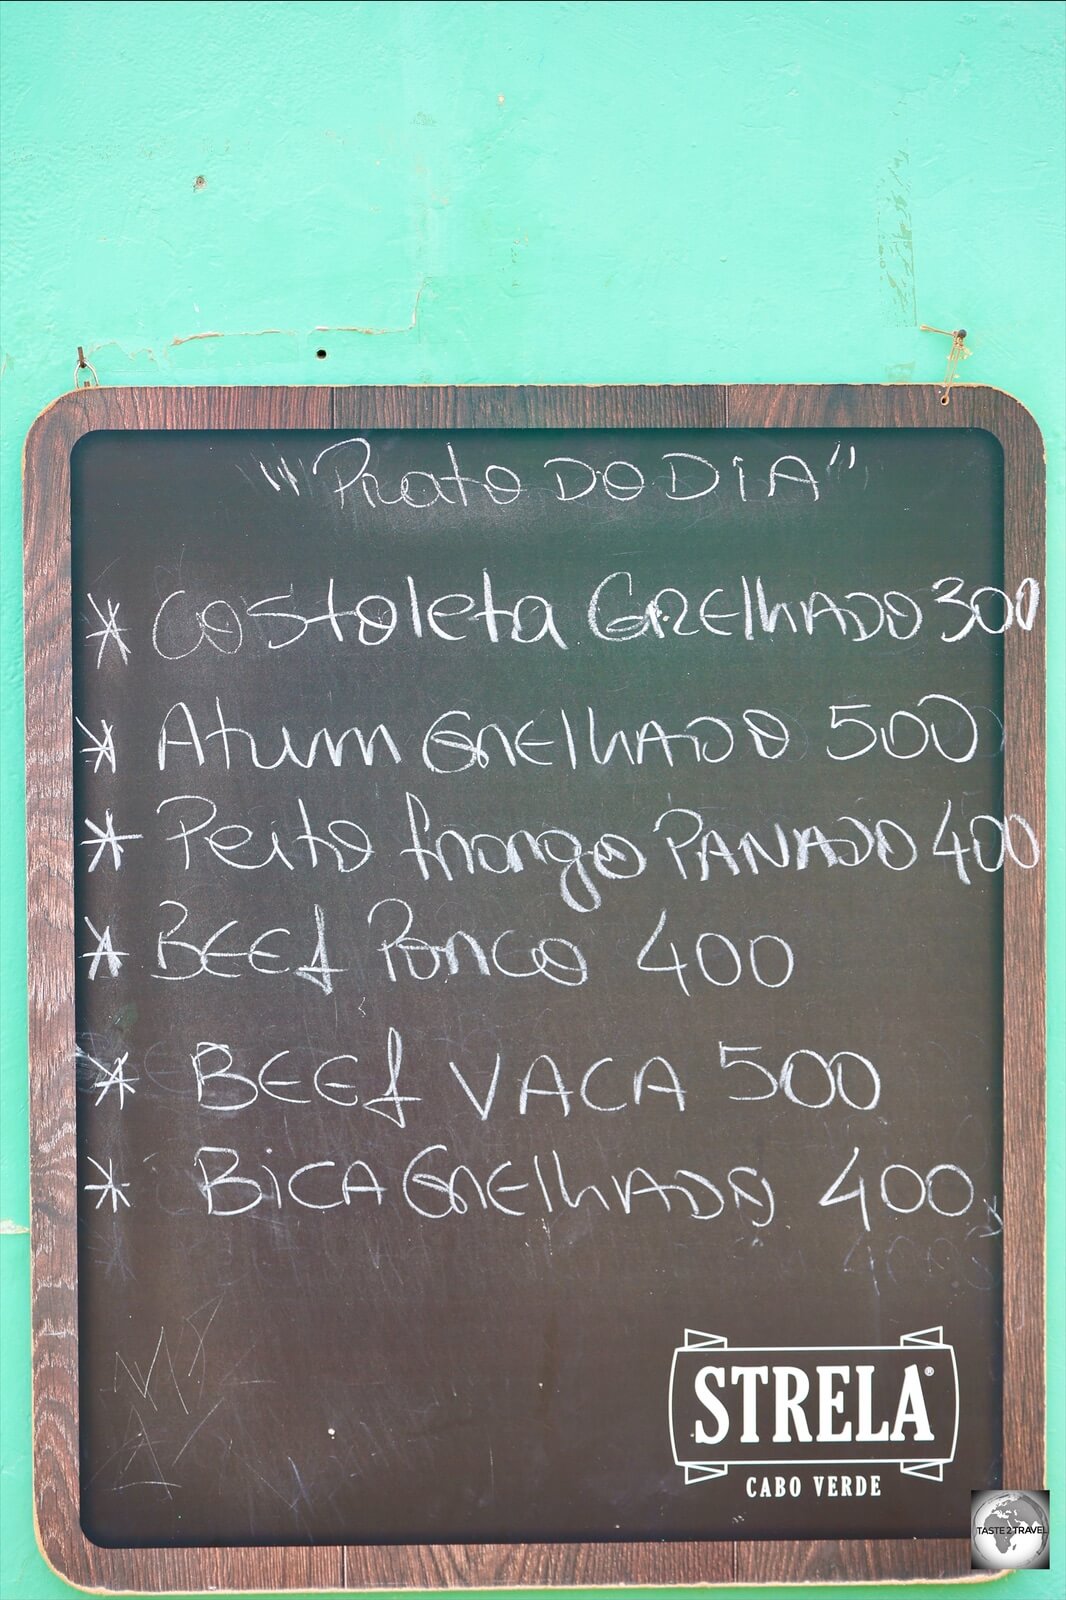 "Prato DO DIA"
* Costoleta GRElhADO 300
* Atum GRElhADO 500
* Peito frango PANADO 400
* BEEf Porco 400
* BEEf VACA 500
* BiCA GRElhADO 400
STRELA®
CABO VERDE
TASTE2TRAVEL